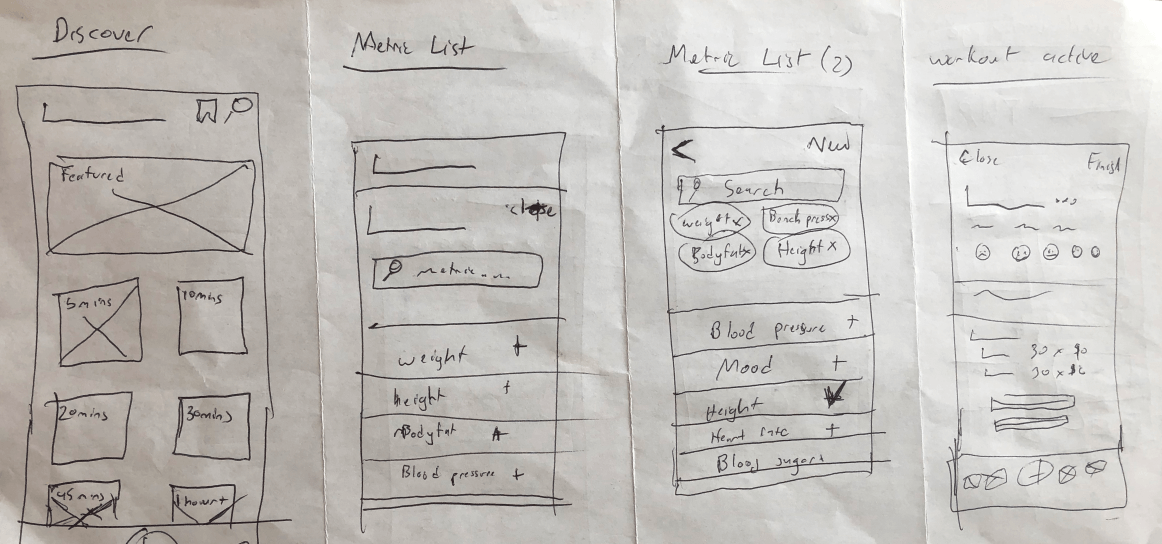 Discover
Featured
5mins
10mins
20mins
30mins
45mins
1hour+
Metric List
close
metric....
weight +
height +
Bodyfat +
Blood pressure +
Metric List (2)
< New
Search
weight x
Bench press x
Bodyfat x
Height x
Blood pressure +
Mood +
Height
Heart rate +
Blood sugar +
workout active
Close Finish
30 x
30 x